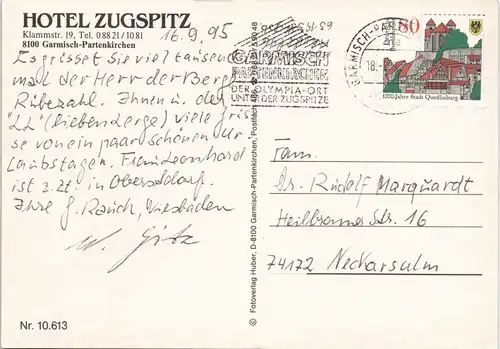 HOTEL ZUGSPITZ
Klammstr. 19, Tel. 08821/1081
8100 Garmisch-Partenkirchen
16.9.95
Es grüsst Sie viel tausend
mal der Herr der Berge
Rübezahl. Ihnen u. den
viele Grüs
se von ein paar schönen Ur
laubstagen. Frau Leonhard
ist z. Zt. in Oberstdorf.
Ihre G. Rauch, Wiesbaden
Nr. 10.613
© Fotoverlag Huber, D-8100 Garmisch-Partenkirchen, Postfach
GARMISCH
PARTENKIRCHEN
DER OLYMPIA-ORT
UNTER DER ZUGSPITZE
GARMISCH-PAR
18.
80
1000 Jahre Stadt Quedlinburg
Fam.
Dr. Rudolf Marquardt
Heilbronner Str. 16
74172 Neckarsulm